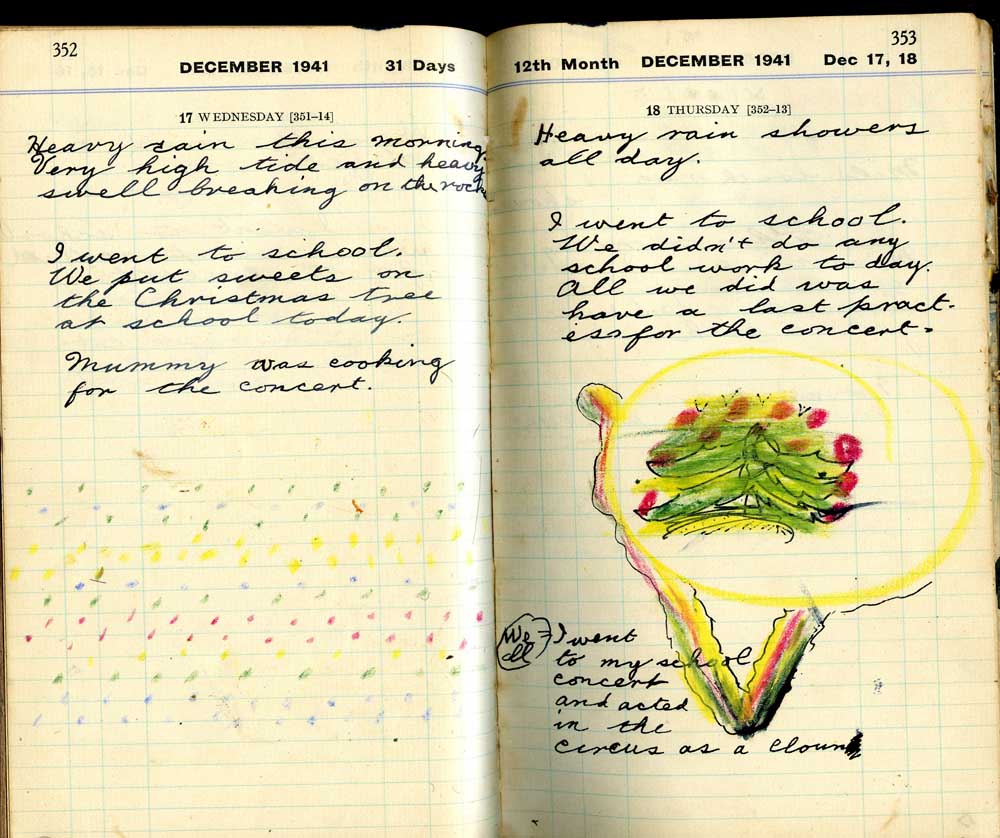 352
DECEMBER 1941 31 Days
17 WEDNESDAY [351–14]
Heavy rain this morning.
Very high tide and heavy
swell breaking on the rocks
I went to school.
We put sweets on
the Christmas tree
at school today.
Mummy was cooking
for the concert.
353
12th Month DECEMBER 1941 Dec 17, 18
18 THURSDAY [352–13]
Heavy rain showers
all day.
I went to school.
We didn't do any
school work to day.
All we did was
have a last pract-
ess for the concert.
We all = I went
to my school
concert
and acted
in the
circus as a clown